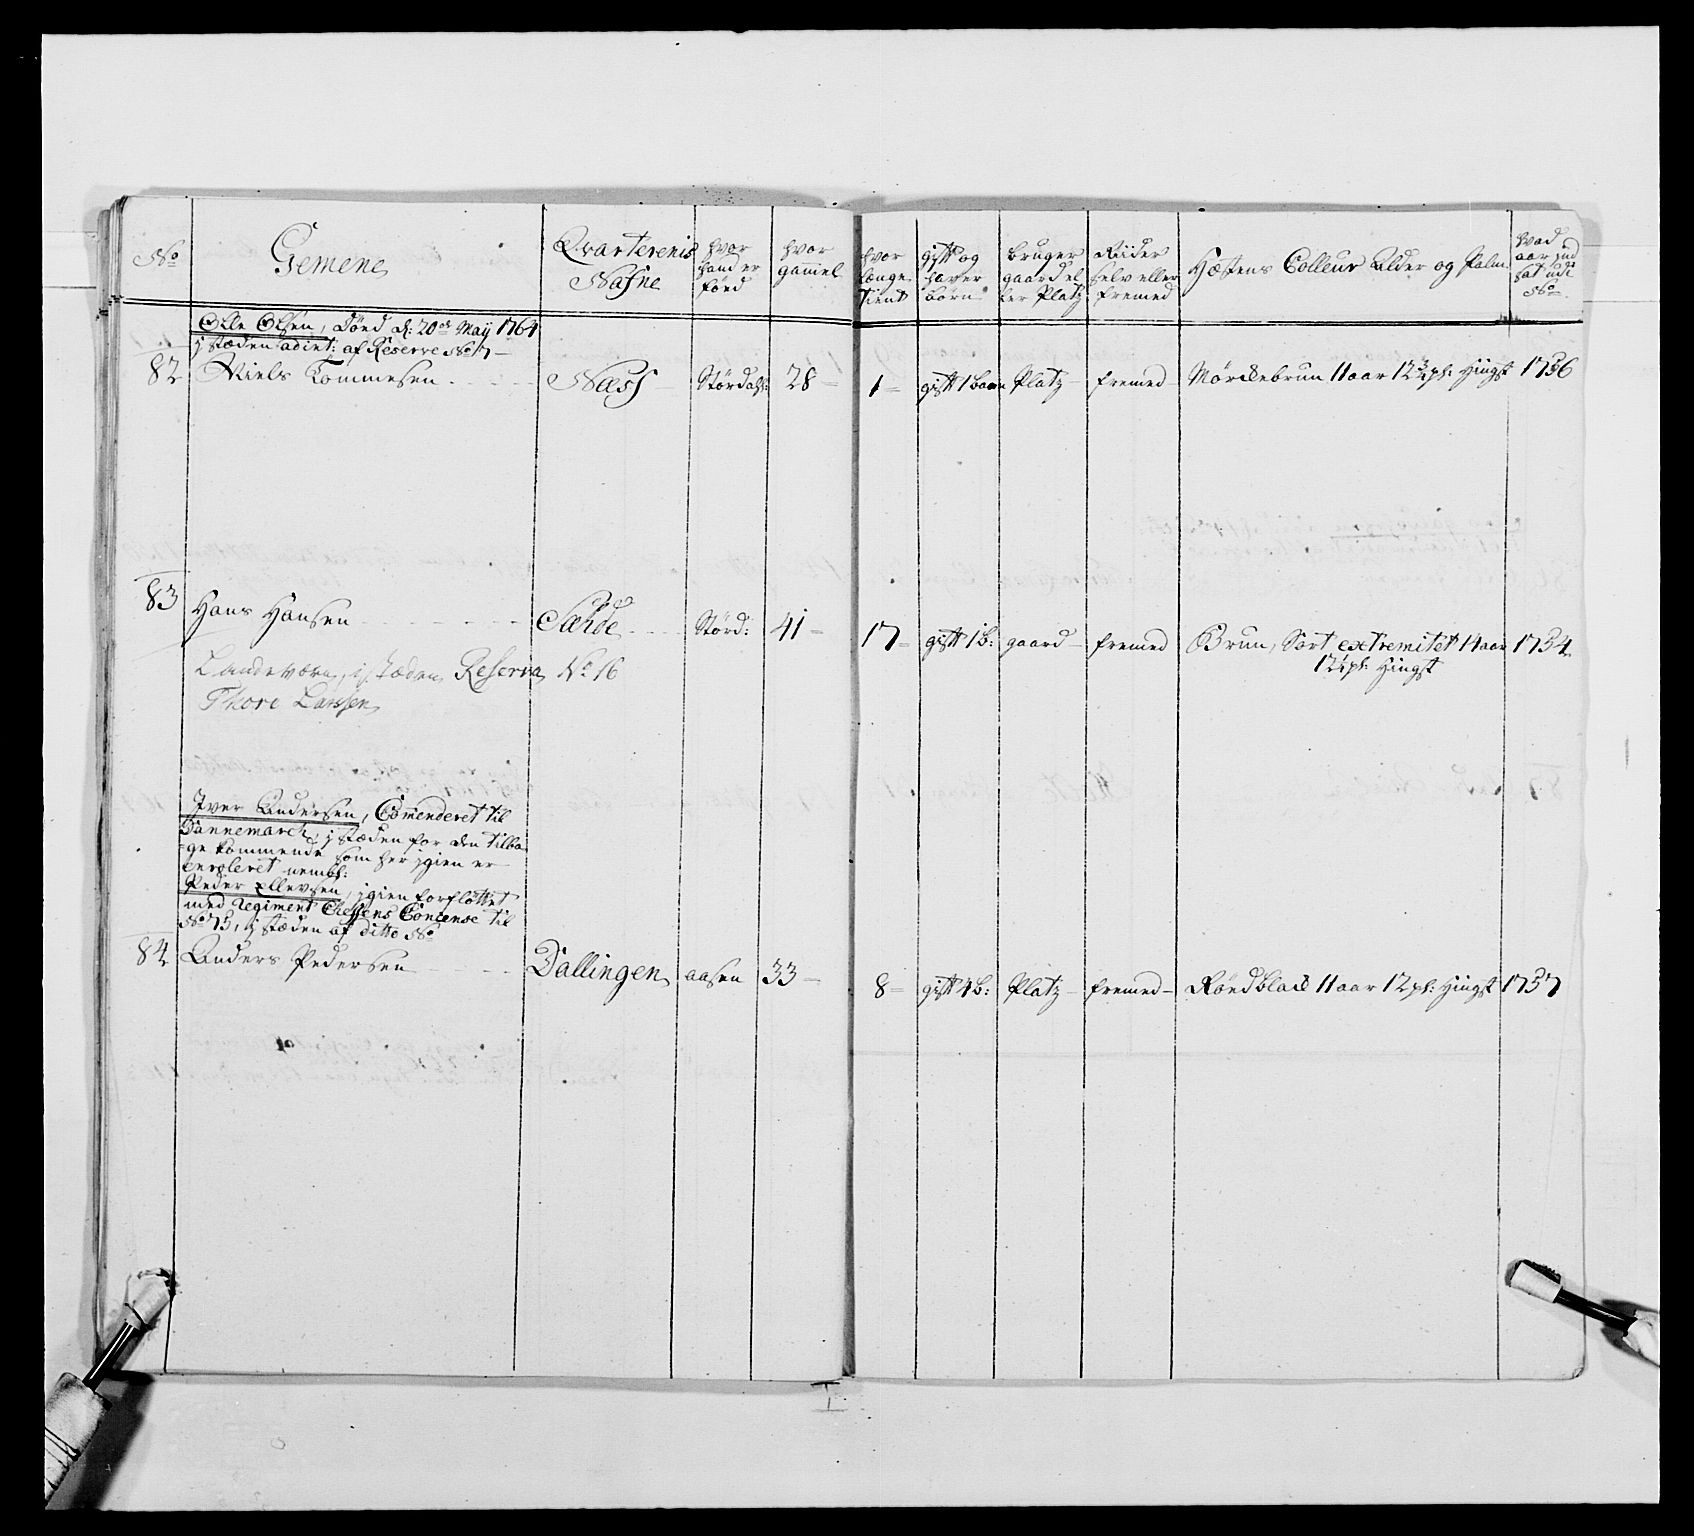 No
Gemene
Qvarterenis Nafne
hvor hand er föed
hvor gammel
hvor længe tient
gift og haver börn
bruger gaard el ler Platz
Riider selv eller fremed
Hæstens Colleur Alder og Palm
hvad aar ind sat udi No
Olle Olsen, Döed d: 20de Maij 1764
j stæden adint: af Reserve No 7
82 Niels Tommesen Næss Stördahl: 28 1 gift 1 barn Platz fremed Mörckebrun 11 aar 12 3/4 pl: Hingst 1756
83 Hans Hansen Sæhde Störd: 41 17 gift 1 b: gaard fremed Brun, Sort extremitet 14 aar 1754
12 1/2 pl: Hingst
Landeværn, i stæden Reserva No 16
Thore Larssen
Iver Andersen, Comenderet til
Dannemarch, j stæden for den tilba
=ge kommende som her jgien er
enroleret nembl:
Peder Ellevsen, jgien forflöttet
med Regiment Cheffens Concense til
No 75, j stæden af ditto No
84 Anders Pedersen Dallingen aasen 33 8 gift 4 b: Platz fremed Röedblaced 11 aar 12 pl: Hingst 1757